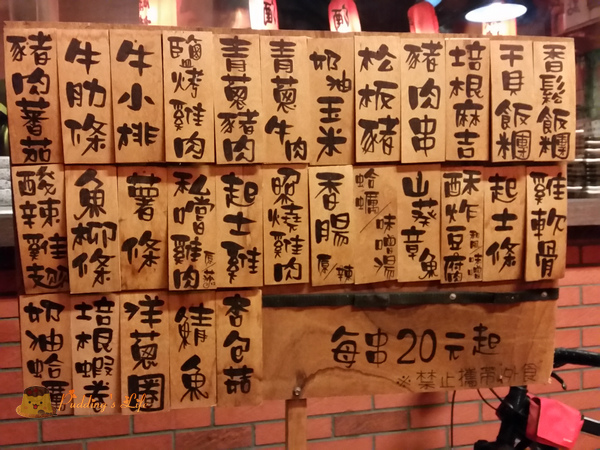 豬肉蕃茄
牛肋條
牛小排
鹽烤雞肉
青蔥豬肉
青蔥牛肉
奶油玉米
松板豬
豬肉串
培根麻吉
干貝飯糰
香鬆飯糰
酸辣雞翅
魚柳條
薯條
私嚐雞肉
起士雞
照燒雞肉
香腸 原 辣
蛤蠣 味噌湯
山葵章魚
酥炸豆腐
起士條
雞軟骨
奶油蛤
培根蝦卷
洋蔥圈
鯖魚
杏包菇
每串20元起
※禁止攜帶外食
Pudding's Life